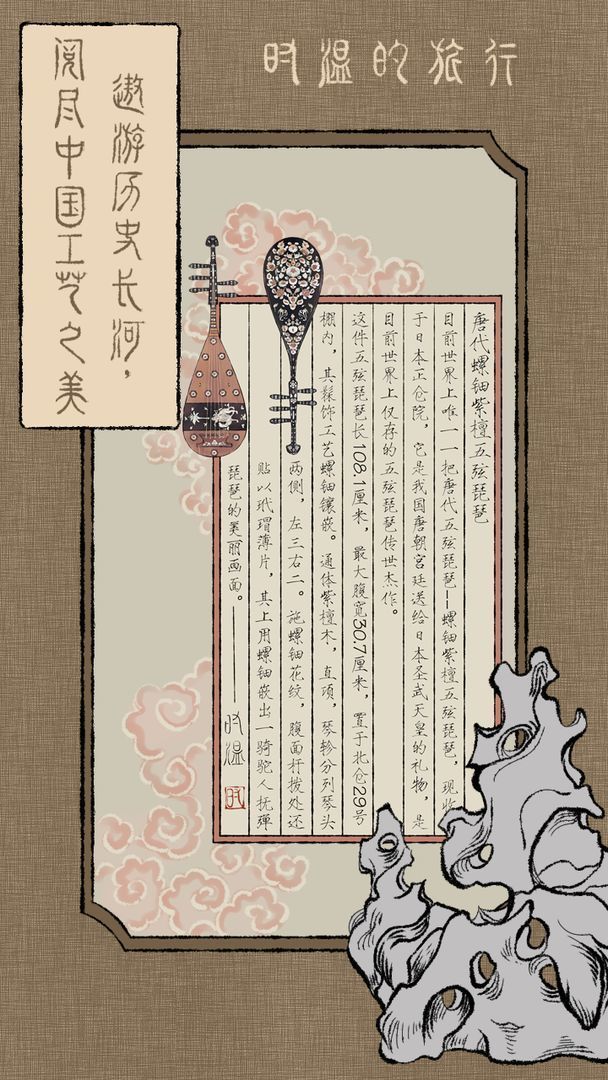 时温的旅行
遨游历史长河，
阅尽中国工艺之美
唐代螺钿紫檀五弦琵琶
目前世界上唯一一把唐代五弦琵琶—螺钿紫檀五弦琵琶，现收
于日本正仓院，它是我国唐朝宫廷送给日本圣武天皇的礼物，是
目前世界上仅存的五弦琵琶传世杰作。
这件五弦琵琶长108.1厘米，最大腹宽30.7厘米，置于北仓29号
棚内，其髹饰工艺螺钿镶嵌。通体紫檀木，直项，琴轸分列琴头
两侧，左三右二。施螺钿花纹，腹面杆拨处还
贴以玳瑁薄片，其上用螺钿嵌出一骑驼人抚彈
琵琶的美丽画面。——时温
时